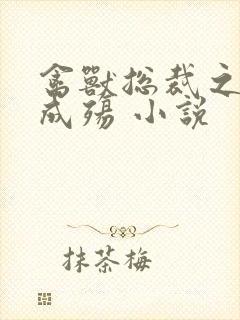 禽獸総裁之
成殤 小說
抹茶梅